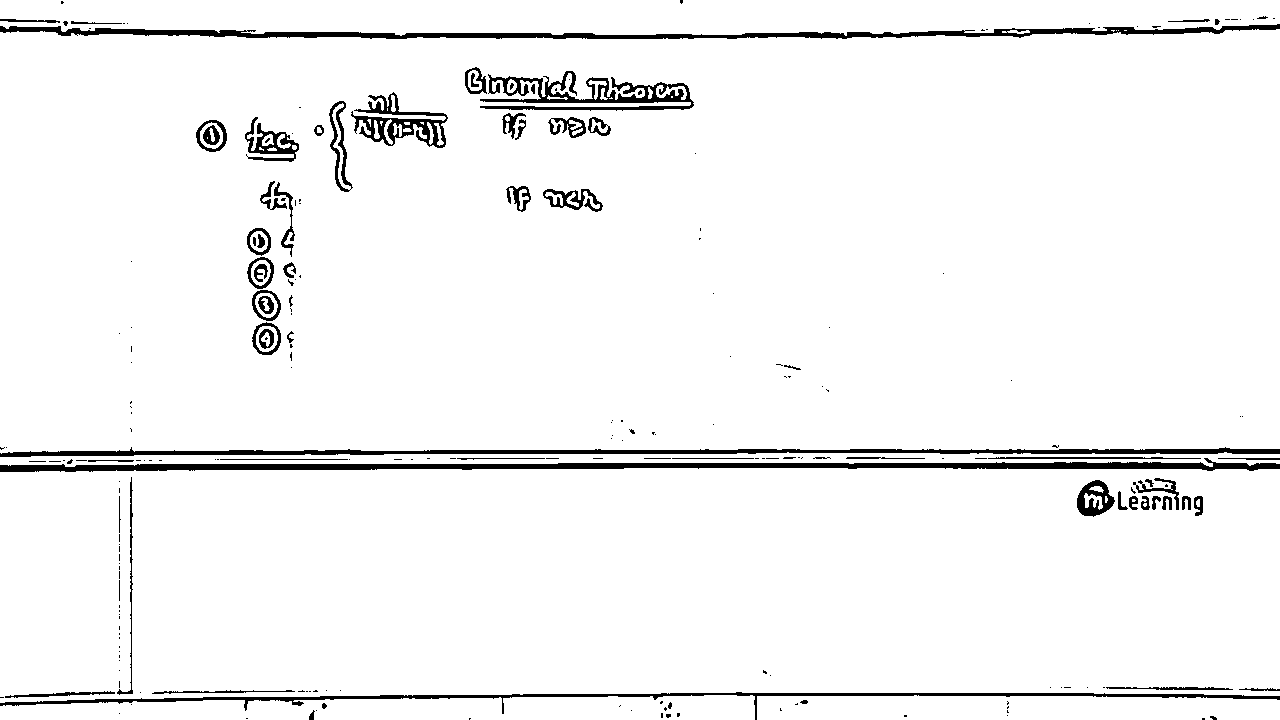 Binomial Theorem
① fac. { n! / r!(n-r)! if n≥r
fa if n<r
①
②
③
④
Learning